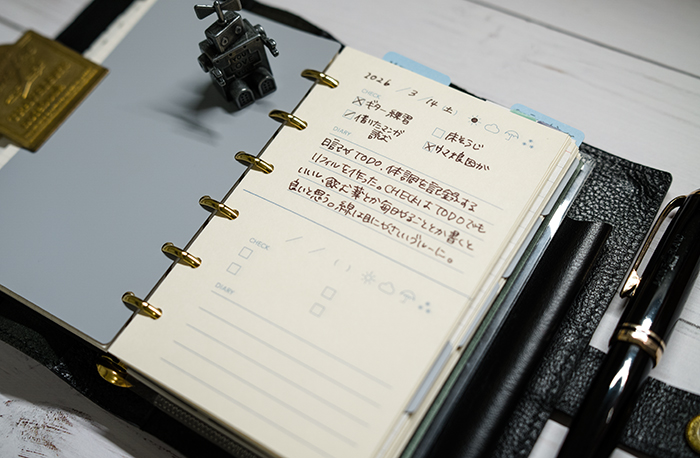 2026 / 3 / 14 (土)
CHECK
ギター練習
借りたマンガ
読む
床そうじ
サマ大良図がか
DIARY
日記やTODO、体調を記録する
リフィルを作った。CHECKはTODOでも
いいし、飲む薬とか毎日やることとか書くと
良いと思う。線は目にやさしいグレーに。
/ / ( )
CHECK
DIARY